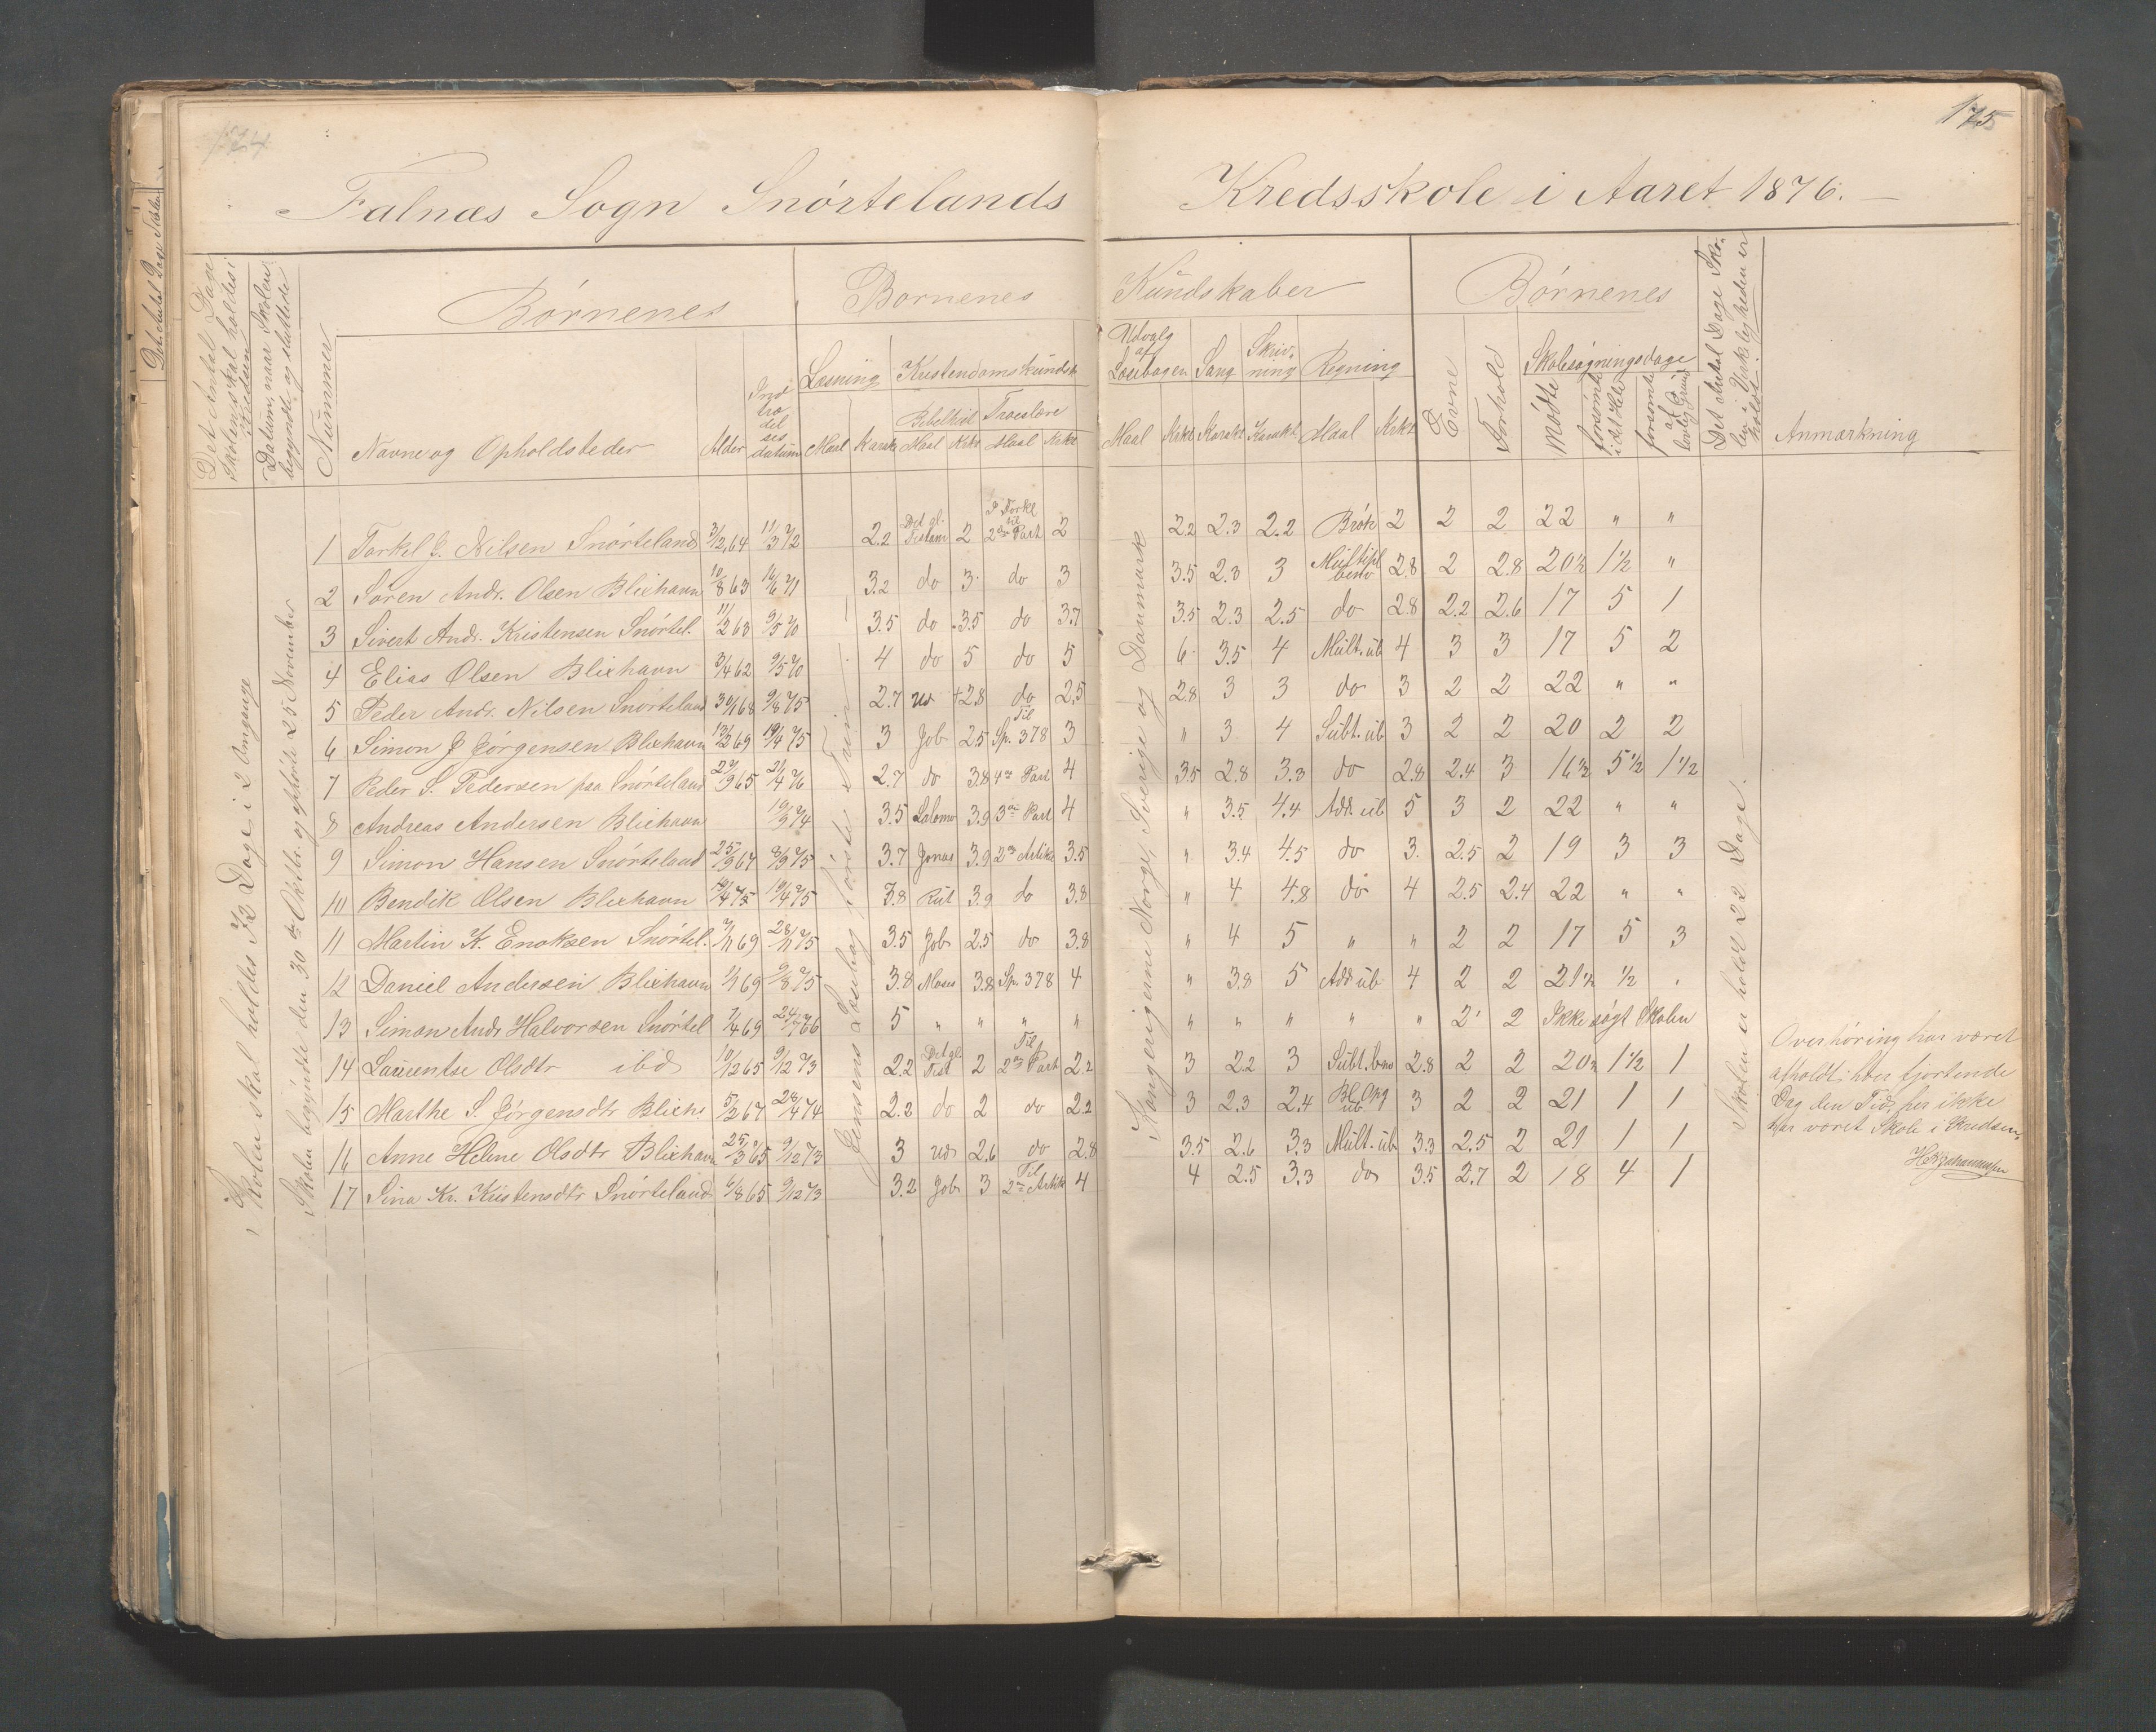 174
175
Falnæs Sogn Snørtelands Kredsskole i Aaret 1876.
Det Antal Dage Skolen skal holdes i Kredsen
Datum, naar Skolen begyndte og sluttede
Nummer
Børnenes
Navne og Opholdsteder
Alder
Indtrædelsesdatum
Børnenes Kundskaber
Læsning
Maal
Karakt
Kristendomskundsk
Bibelhist
Maal
Krkt
Troeslære
Maal
Krkt
Udvalg af Læsebogen
Maal
Krkt
Sang
Karakt
Skrivning
Karakt
Regning
Maal
Krkt
Børnenes
Evne
Forhold
Skolesøgningsdage
Mødte
forsømte i det Hele
forsømte af lovlig Grund
Det Antal Dage Skolen i Virkeligheden er holdt
Anmærkning
Skolen skal holdes 1/2 Dage i 2 Omgange
Skolen begyndte den 30te Oktbr. og ophørte 25 November
Jensens Læsebog første Trin
Kongerigerne Norge, Sverige og Danmark
Skolen er holdt 22 Dage.
1 Torkel G. Nilsen Snørteland 3/12 64 11/3 72 2.2 Det gl. Testam 2 2den Part 2 2.2 2.3 2.2 Brøk 2 2 2 22 " "
2 Søren Andr. Olsen Blixhavn 10/8 63 16/6 71 3.2 do 3 do 3 3.5 2.3 3 Multipl ben 2.8 2 2.8 20½ 1½ "
3 Sivert Andr. Kristensen Snørtel. 11/2 63 9/5 70 3.5 do 3.5 do 3.7 3.5 2.3 2.5 do 2.8 2.2 2.6 17 5 1
4 Elias Olsen Blixhavn 3/4 62 9/5 70 4 do 5 do 5 6 3.5 4 Mult. ub 4 3 3 17 5 2
5 Peder Andr. Nilsen Snørteland 30/1 68 9/8 75 2.7 2.8 do 2.5 2.8 3 3 do 3 2 2 22 " "
6 Simon J Jørgensen Blixhavn 13/2 69 19/4 75 3 Job 2.5 Til Sp. 378 3 " 3 4 Subt. ub 3 2 2 20 2 2
7 Peder S. Pedersen paa Snørteland 29/3 65 21/4 76 2.7 do 3.8 4de Part 4 3.5 2.8 3.3 do 2.8 2.4 3 16½ 5½ 1½
8 Andreas Andersen Blixhavn 19/3 74 3.5 Salomo 3.9 3die Part 4 " 3.5 4.4 Add. ub 5 3 2 22 " "
9 Simon Hansen Snørteland 25/9 67 8/9 75 3.7 Jonas 3.9 2den Artike 3.5 " 3.4 4.5 do 3. 2.5 2 19 3 3
10 Bendik Olsen Blixhavn 19/4 75 3.8 Rut 3.9 do 3.8 " 4 4.8 do 4 2.5 2.4 22 " "
11 Martin K. Enoksen Snørtel. 7/11 69 28/11 75 3.5 Job 2.5 do 3.8 " 4 5 " " 2 2 17 5 3
12 Daniel Andersen Blixhavn 1/1 69 9/8 75 3.8 Moses 3.8 Sp. 378 4 " 3.8 5 Add ub 4 2 2 21½ ½ "
13 Simon Andr Halvorsen Snørtel 7/4 69 24/7 76 5 " " " " " " " " " 2 2 Ikke søgt Skolen
14 Laurentse Olsdtr ibid 10/12 65 9/12 73 2.2 Det gl. Test 2 Til 2den Part 2.2 3 2.2 3 Subt. ben 2.8 2 2 20½ 1½ 1
15 Marthe S. Jørgensdtr Blixh. 5/2 67 28/4 74 2.2 do 2 do 2.2 3 2.3 2.4 Bl. Opg ub 3 2 2 21 1 1
16 Anne Helene Olsdtr Blixhavn 25/3 65 9/12 73 3 2.6 do 2.8 3.5 2.6 3.3 Mult. ub 3.3 2.5 2 21 1 1
17 Sina Kr. Kristensdtr Snørteland 6/8 65 9/12 73 3.2 Job 3 Til 2den Artik 4 4 2.5 3.3 do 3.5 2.7 2 18 4 1
Overhøring har været
afholdt hver fjortende
Dag den Tid her ikke
har været Skole i Kredsen.